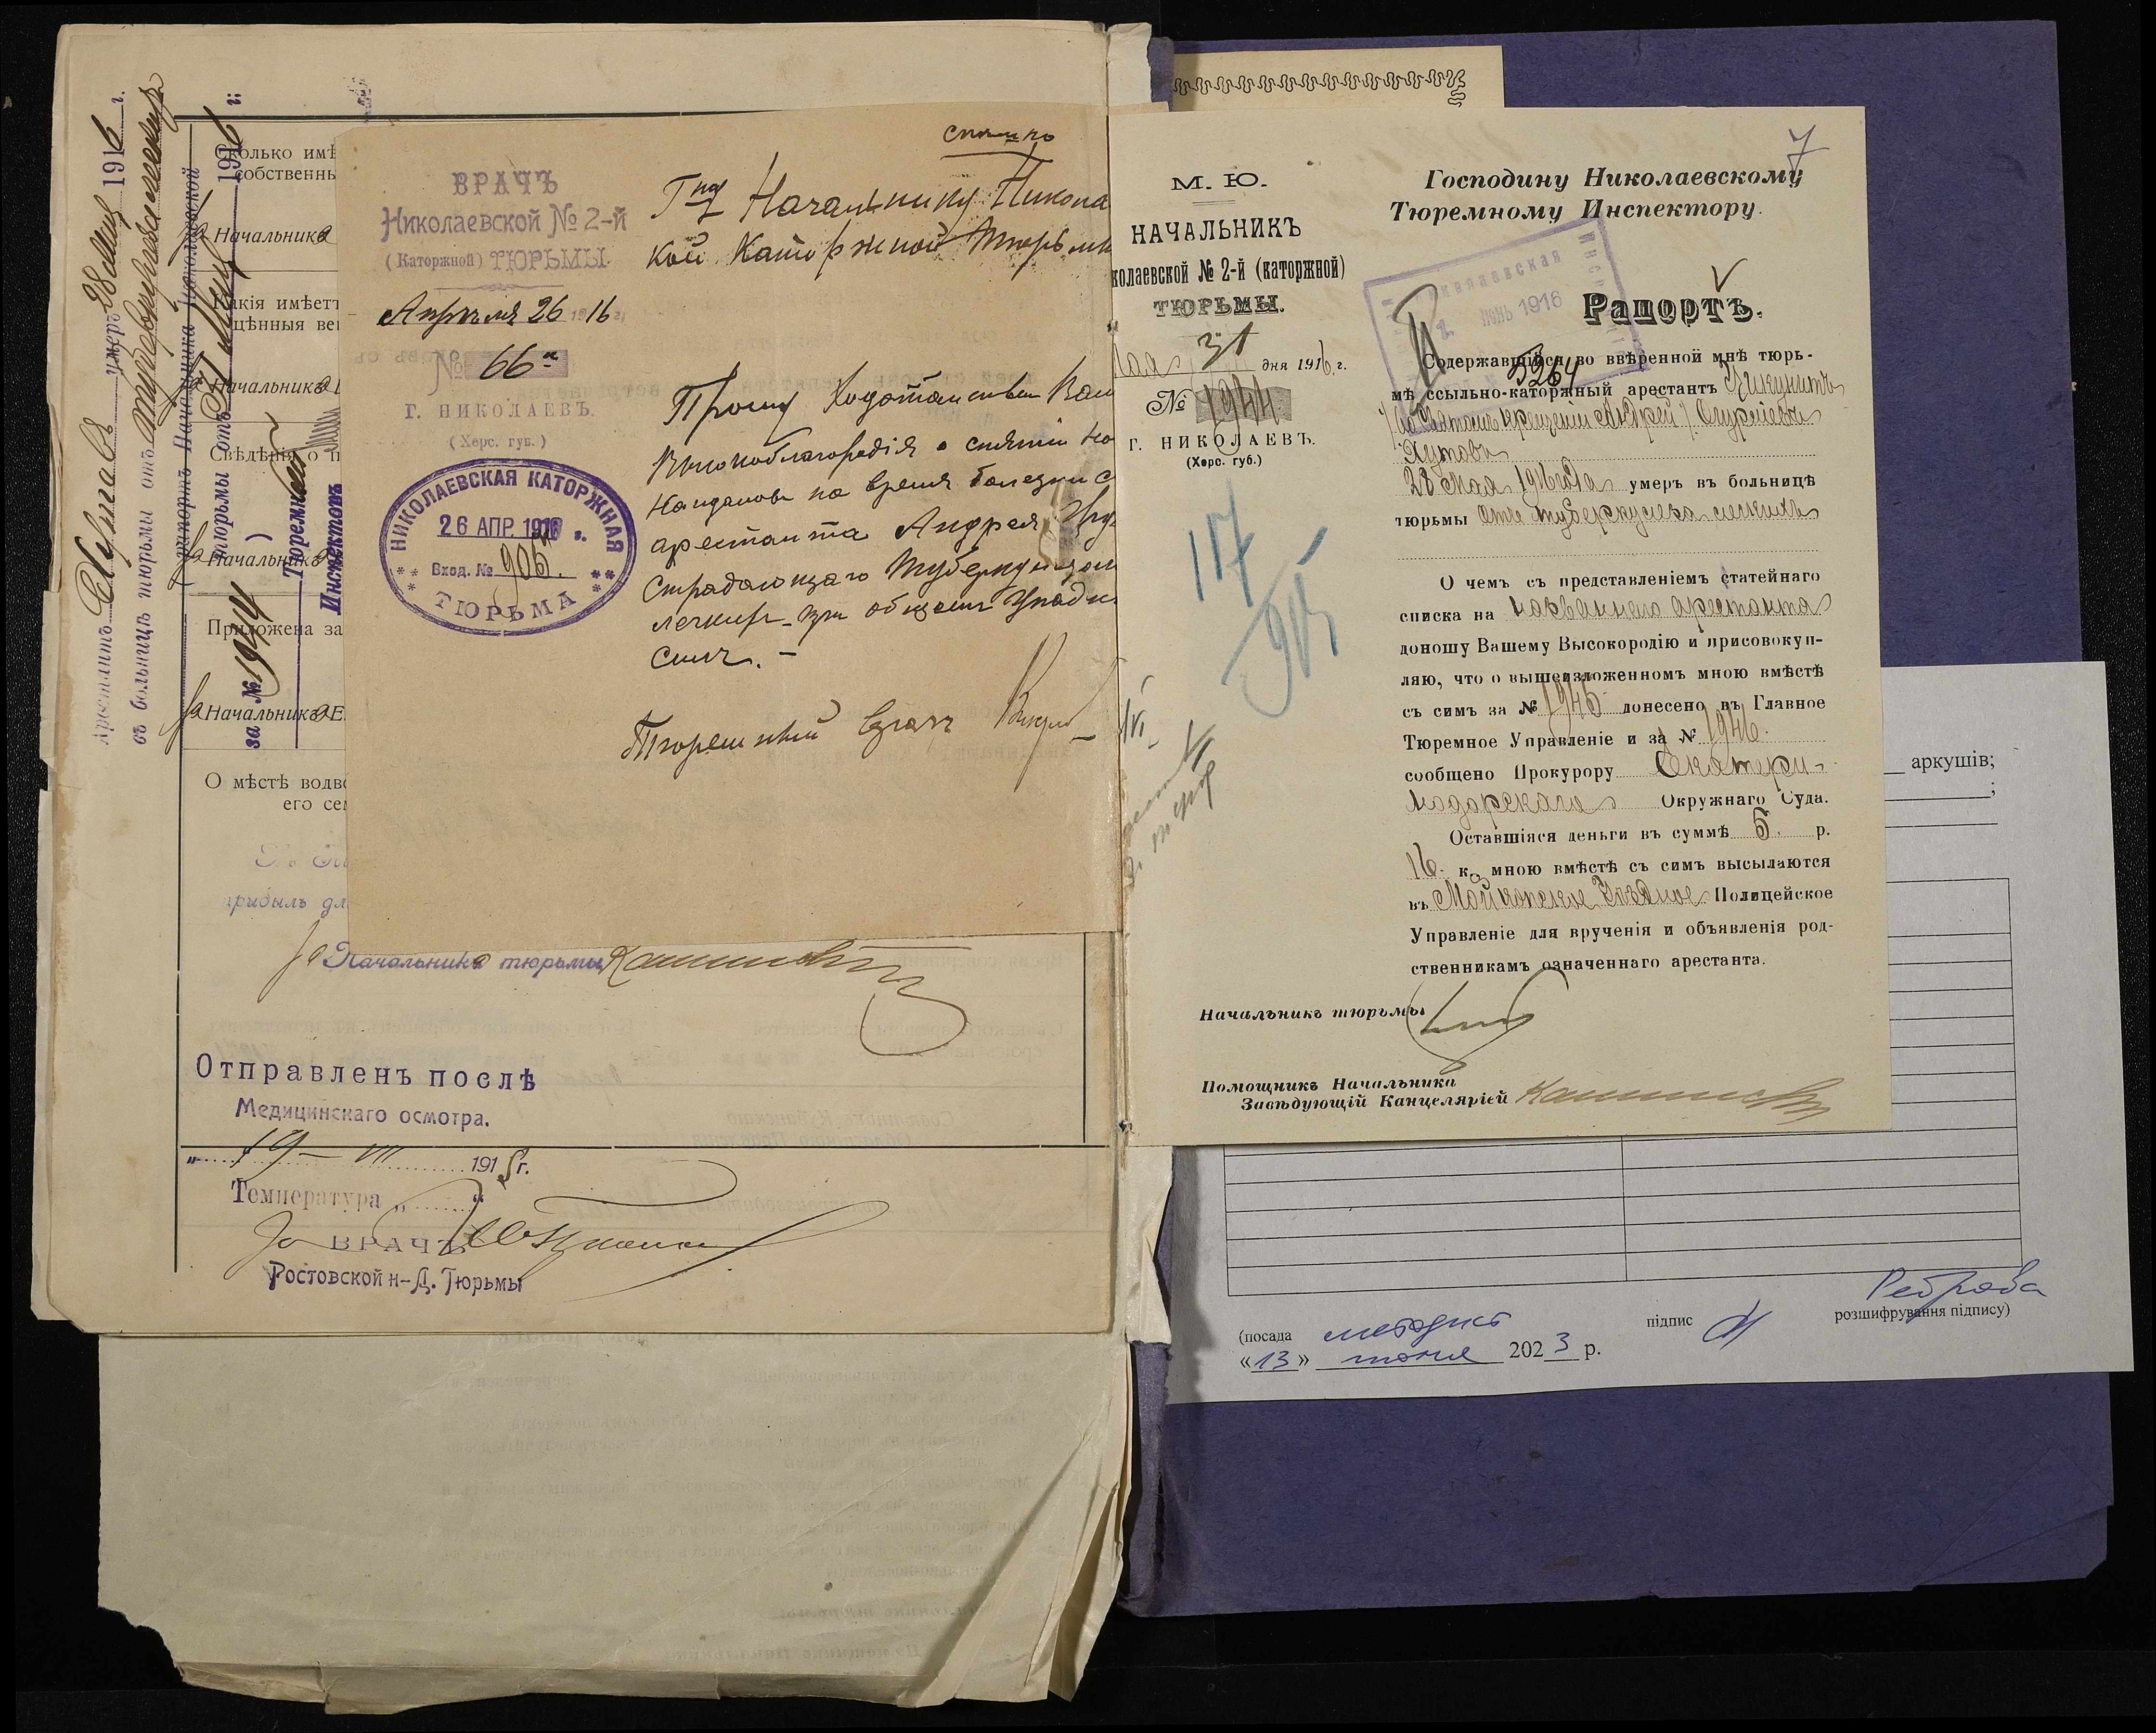 Арестантъ Хутовъ умеръ 28 Мая 1916 г.
въ больницѣ тюрьмы отъ туберкулеза легкихъ
рапортъ Начальника Николаевской
тюрьмы отъ 31 Мая 1916 г.
за № 1944
Тюремный
Инспекторъ
Сколько имѣ
собственны
За Начальника
Какія имѣетъ
цѣнныя ве
За Начальника
Свѣдѣнія о п
За Начальника
Приложена за
За Начальника
О мѣстѣ водво
его сем
прибылъ дл
За Начальника тюрьмы
Отправленъ послѣ
Медицинскаго осмотра.
„ 19 – VIII 1915 г.
Температура „ “
За ВРАЧЪ
Ростовской н-Д. Тюрьмы
ВРАЧЪ
Николаевской № 2-й
(Каторжной) ТЮРЬМЫ.
Апрѣля 26 1916 г.
№ 66а
Г. НИКОЛАЕВЪ.
(Херс. губ.)
НИКОЛАЕВСКАЯ КАТОРЖНАЯ
26 АПР. 1916 г.
Вход. № 905
ТЮРЬМА
Гну Начальнику Никола
кой Каторжной Тюрьмы
Прошу Ходотайства Ваш
Высокоблагородія о снятіи
Кандаловъ на время болезни с
арестанта Андрея
Страдающаго Туберкулезом
легкихъ при общемъ упадк
силъ. –
Тюремный Врачъ
М. Ю.
НАЧАЛЬНИКЪ
колаевской № 2-й (каторжной)
ТЮРЬМЫ.
Мая 31 дня 1916 г.
№ 1944
Г. НИКОЛАЕВЪ.
(Херс. губ.)
117
905
7
Господину Николаевскому
Тюремному Инспектору.
Николаевская
ІЮНЬ 1916
5264
Рапортъ.
Содержавшійся во ввѣренной мнѣ тюрь-
мѣ ссыльно-каторжный арестантъ
(во Святомъ крещеніи Андрей)
Хутовъ
28 Мая 1916 года умеръ въ больницѣ
тюрьмы отъ туберкулеза легкихъ
О чемъ съ представленіемъ статейнаго
списка на названнаго арестанта
доношу Вашему Высокородію и присовокуп-
ляю, что о вышеизложенномъ мною вмѣстѣ
съ симъ за № 1945 донесено въ Главное
Тюремное Управленіе и за № 1946
сообщено Прокурору Екатери-
нодарскаго Окружнаго Суда.
Оставшіяся деньги въ суммѣ 5 р.
16 к. мною вмѣстѣ съ симъ высылаются
въ Майкопское Уѣздное Полицейское
Управленіе для врученія и объявленія род-
ственникамъ означеннаго арестанта.
Начальникъ тюрьмы
Помощникъ Начальника
Завѣдующій Канцеляріей
аркушів;
;
(посада методист підпис Реброва
розшифрування підпису)
« 13 » июня 2023 р.